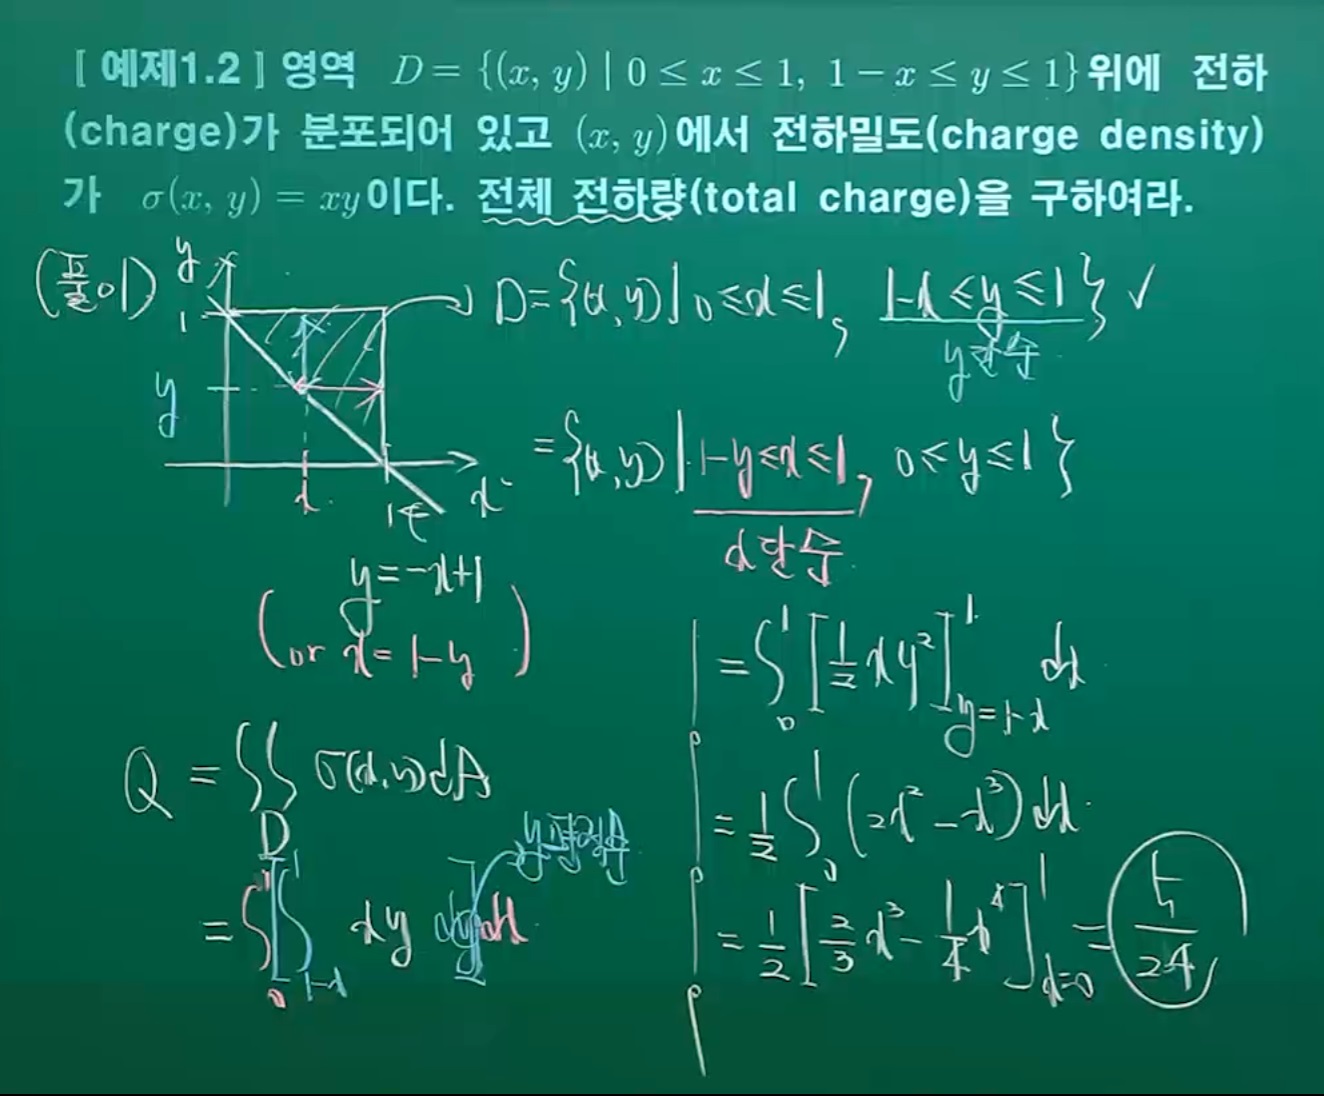 [ 예제1.2 ] 영역 D = {(x, y) | 0 ≤ x ≤ 1, 1 − x ≤ y ≤ 1} 위에 전하
(charge)가 분포되어 있고 (x, y)에서 전하밀도(charge density)
가 σ(x, y) = xy이다. 전체 전하량(total charge)을 구하여라.
(풀이)
y
1
y
x
1
x
D = {(x, y) | 0 ≤ x ≤ 1, 1-x ≤ y ≤ 1} ✓
y 단순
= {(x, y) | 1-y ≤ x ≤ 1, 0 ≤ y ≤ 1}
x 단순
y = -x+1
(or x = 1-y)
Q = ∬_D σ(x, y) dA
= ∫_0^1 [∫_{1-x}^1 xy dy] dx
= ∫_0^1 [1/2 xy²]_{y=1-x}^1 dx
= 1/2 ∫_0^1 (2x² - x³) dx
= 1/2 [2/3 x³ - 1/4 x⁴]_{x=0}^1 = 5/24